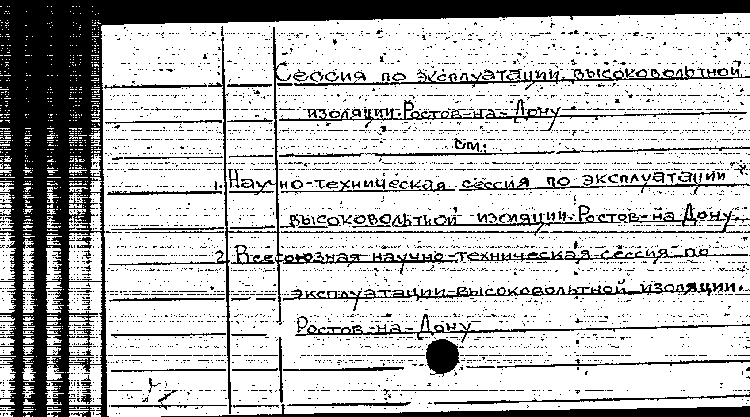 Сессия по эксплуатации высоковольтной
изоляции. Ростов-на-Дону
см.
1. Научно-техническая сессия по эксплуатации
высоковольтной изоляции. Ростов-на-Дону.
2. Всесоюзная научно-техническая сессия по
эксплуатации высоковольтной изоляции.
Ростов-на-Дону